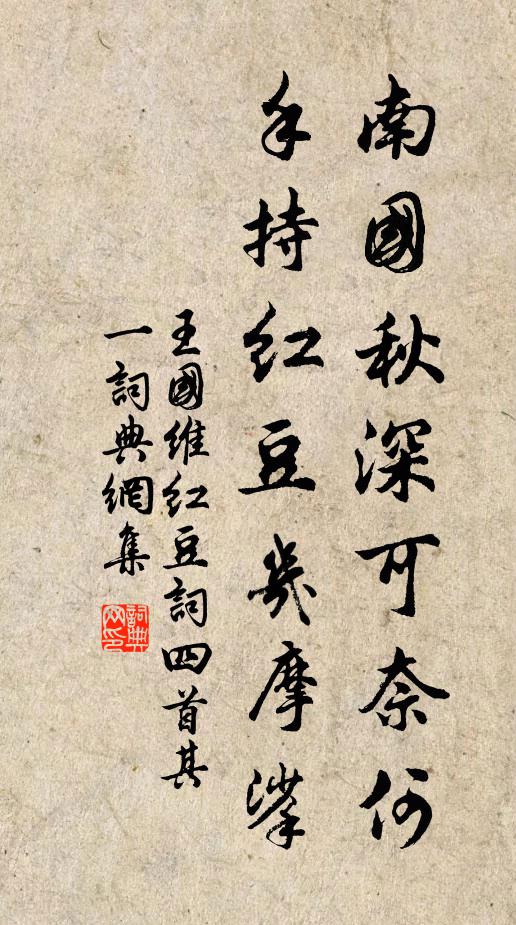 南國秋深可奈何
手持紅豆幾摩挲
王國維紅豆詞四首其
一詞典網集
詞典
網印